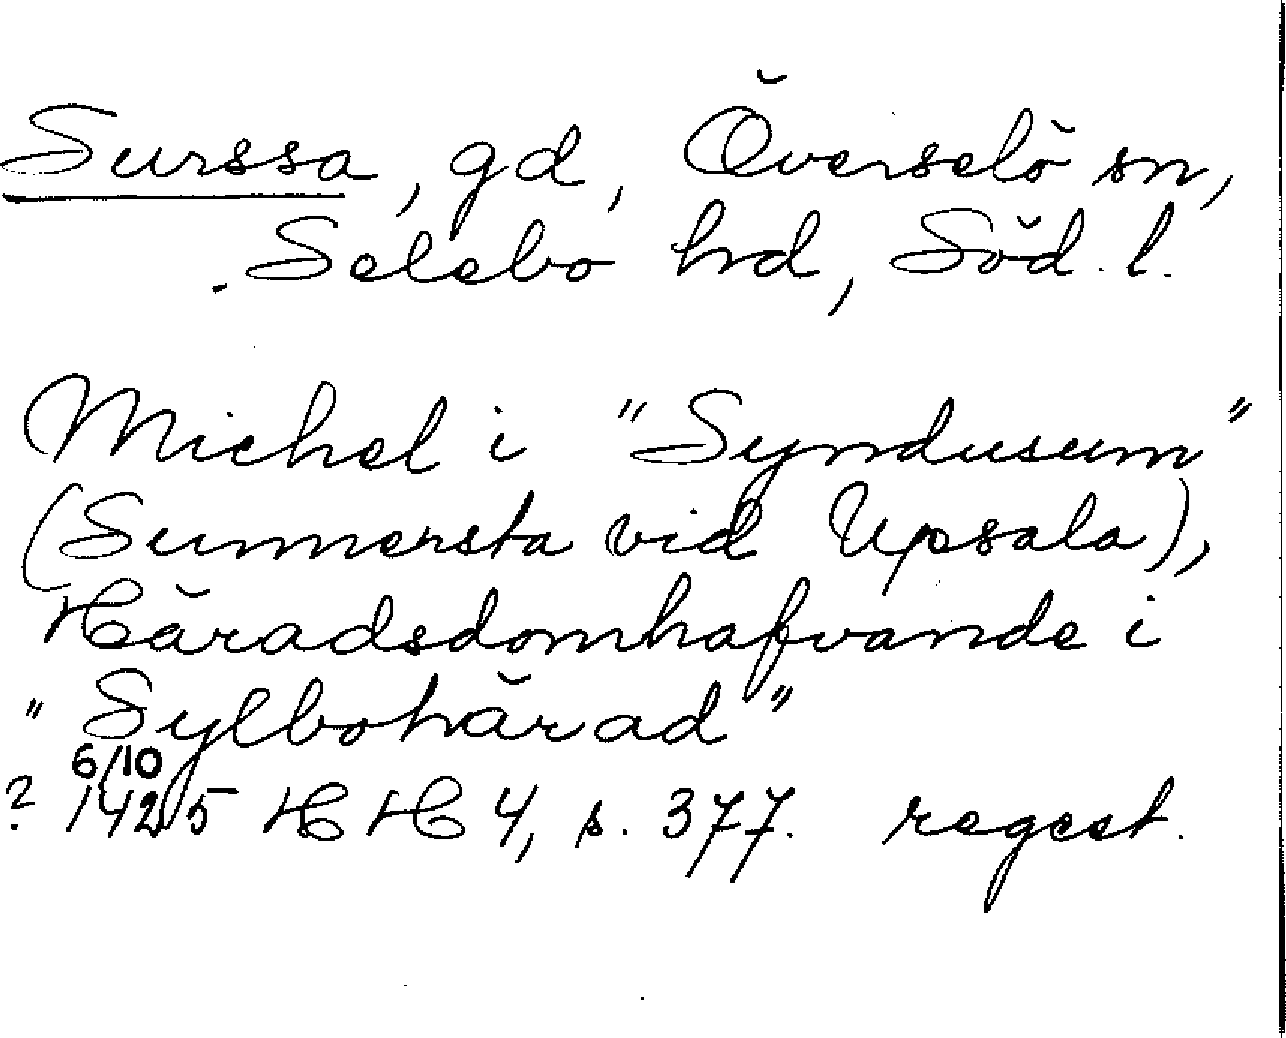 Surssa, gd, Överselö sn,
Selebo hrd, Söd. l.
Michel i "Syndusum"
(Sunnersta vid Upsala),
Häradsdomhafvande i
"Sylbohärad"
6/10
? 1425 HH 4, s. 377. regest.